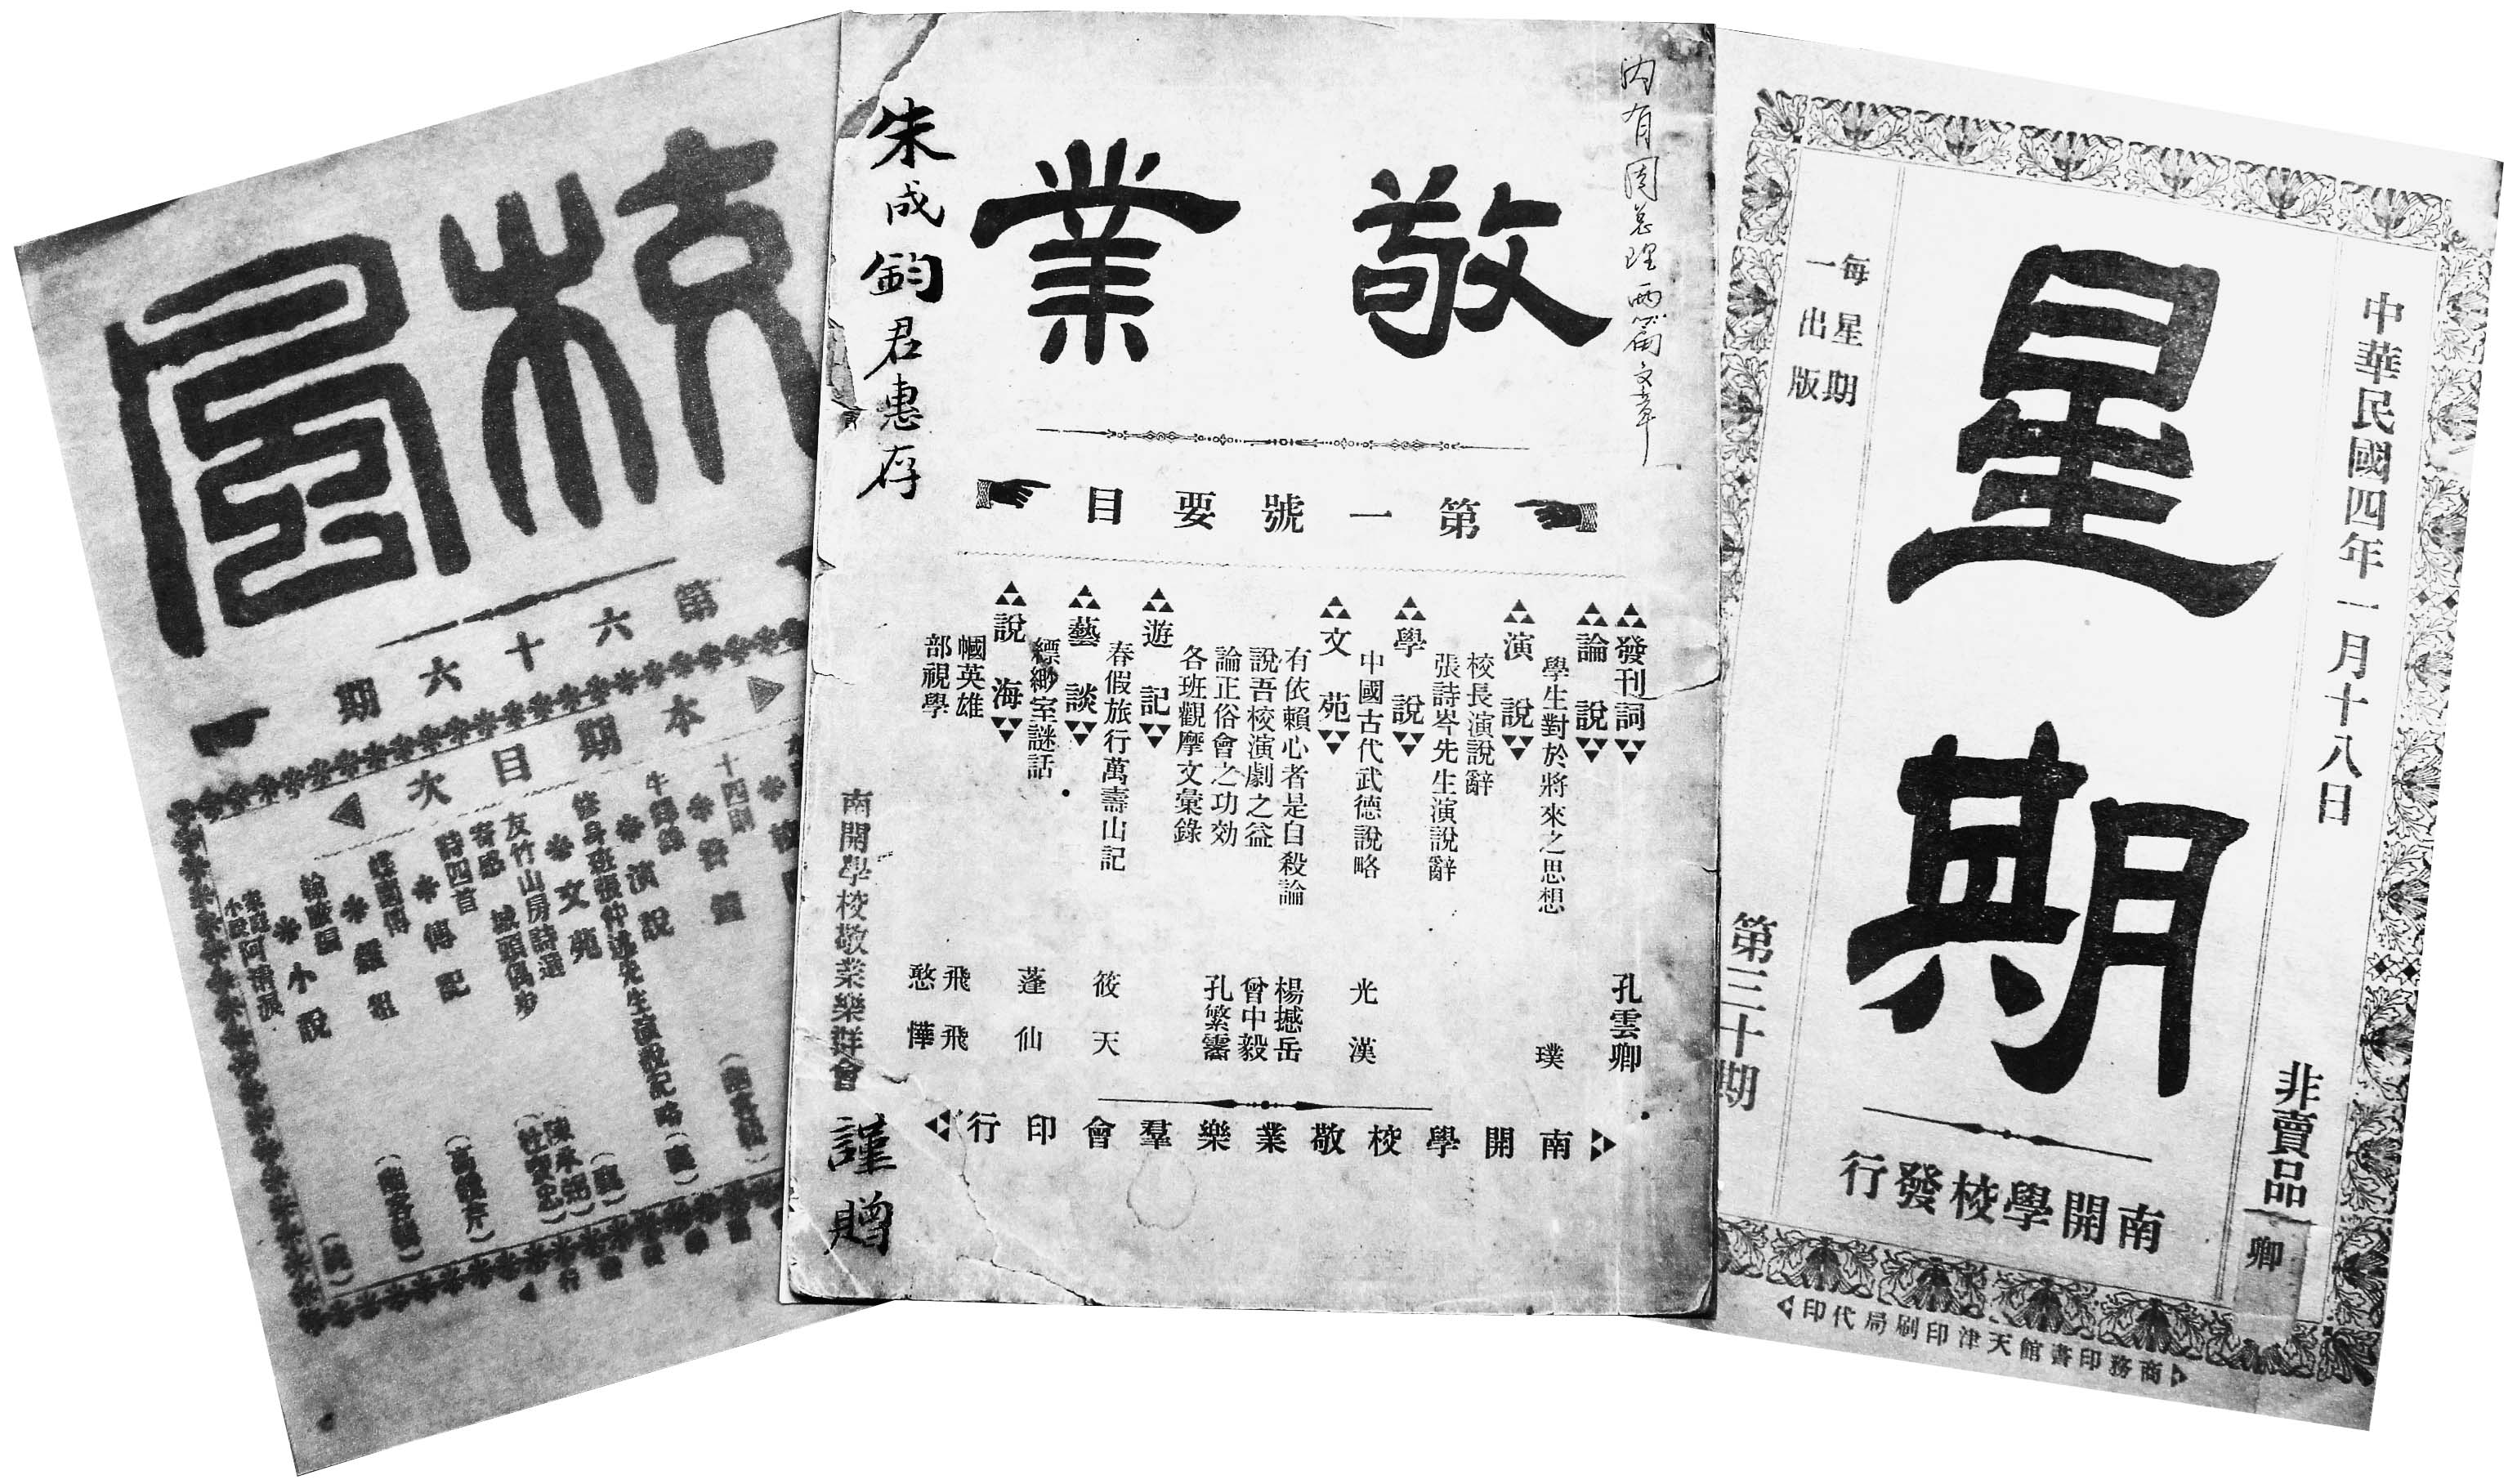 校風
第六十六期
本期目次
十四則
演說
修身班張仲述先生演說記略
文苑
友竹山房詩選
城頭偶步
寄感
詩四首
傳記
小說
敬業
內有周總理兩篇文章
朱成鈞君惠存
南開學校敬業樂群會
謹贈
第一號要目
發刊詞
孔雲卿
論說
學生對於將來之思想
璞
演說
校長演說辭
張詩岑先生演說辭
學說
中國古代武德說略
光漢
文苑
有依賴心者是自殺論
楊撼岳
說吾校演劇之益
曾中毅
論正俗會之功効
孔繁霱
各班觀摩文彙錄
遊記
春假旅行萬壽山記
筱天
藝談
縹緲室謎話
蓬仙
說海
巾幗英雄
飛飛
部視學
憨憚
南開學校敬業樂羣會印行
中華民國四年一月十八日
非賣品
卿
星期
南開學校發行
每星期
一出版
第三十期
商務印書館天津印刷局代印